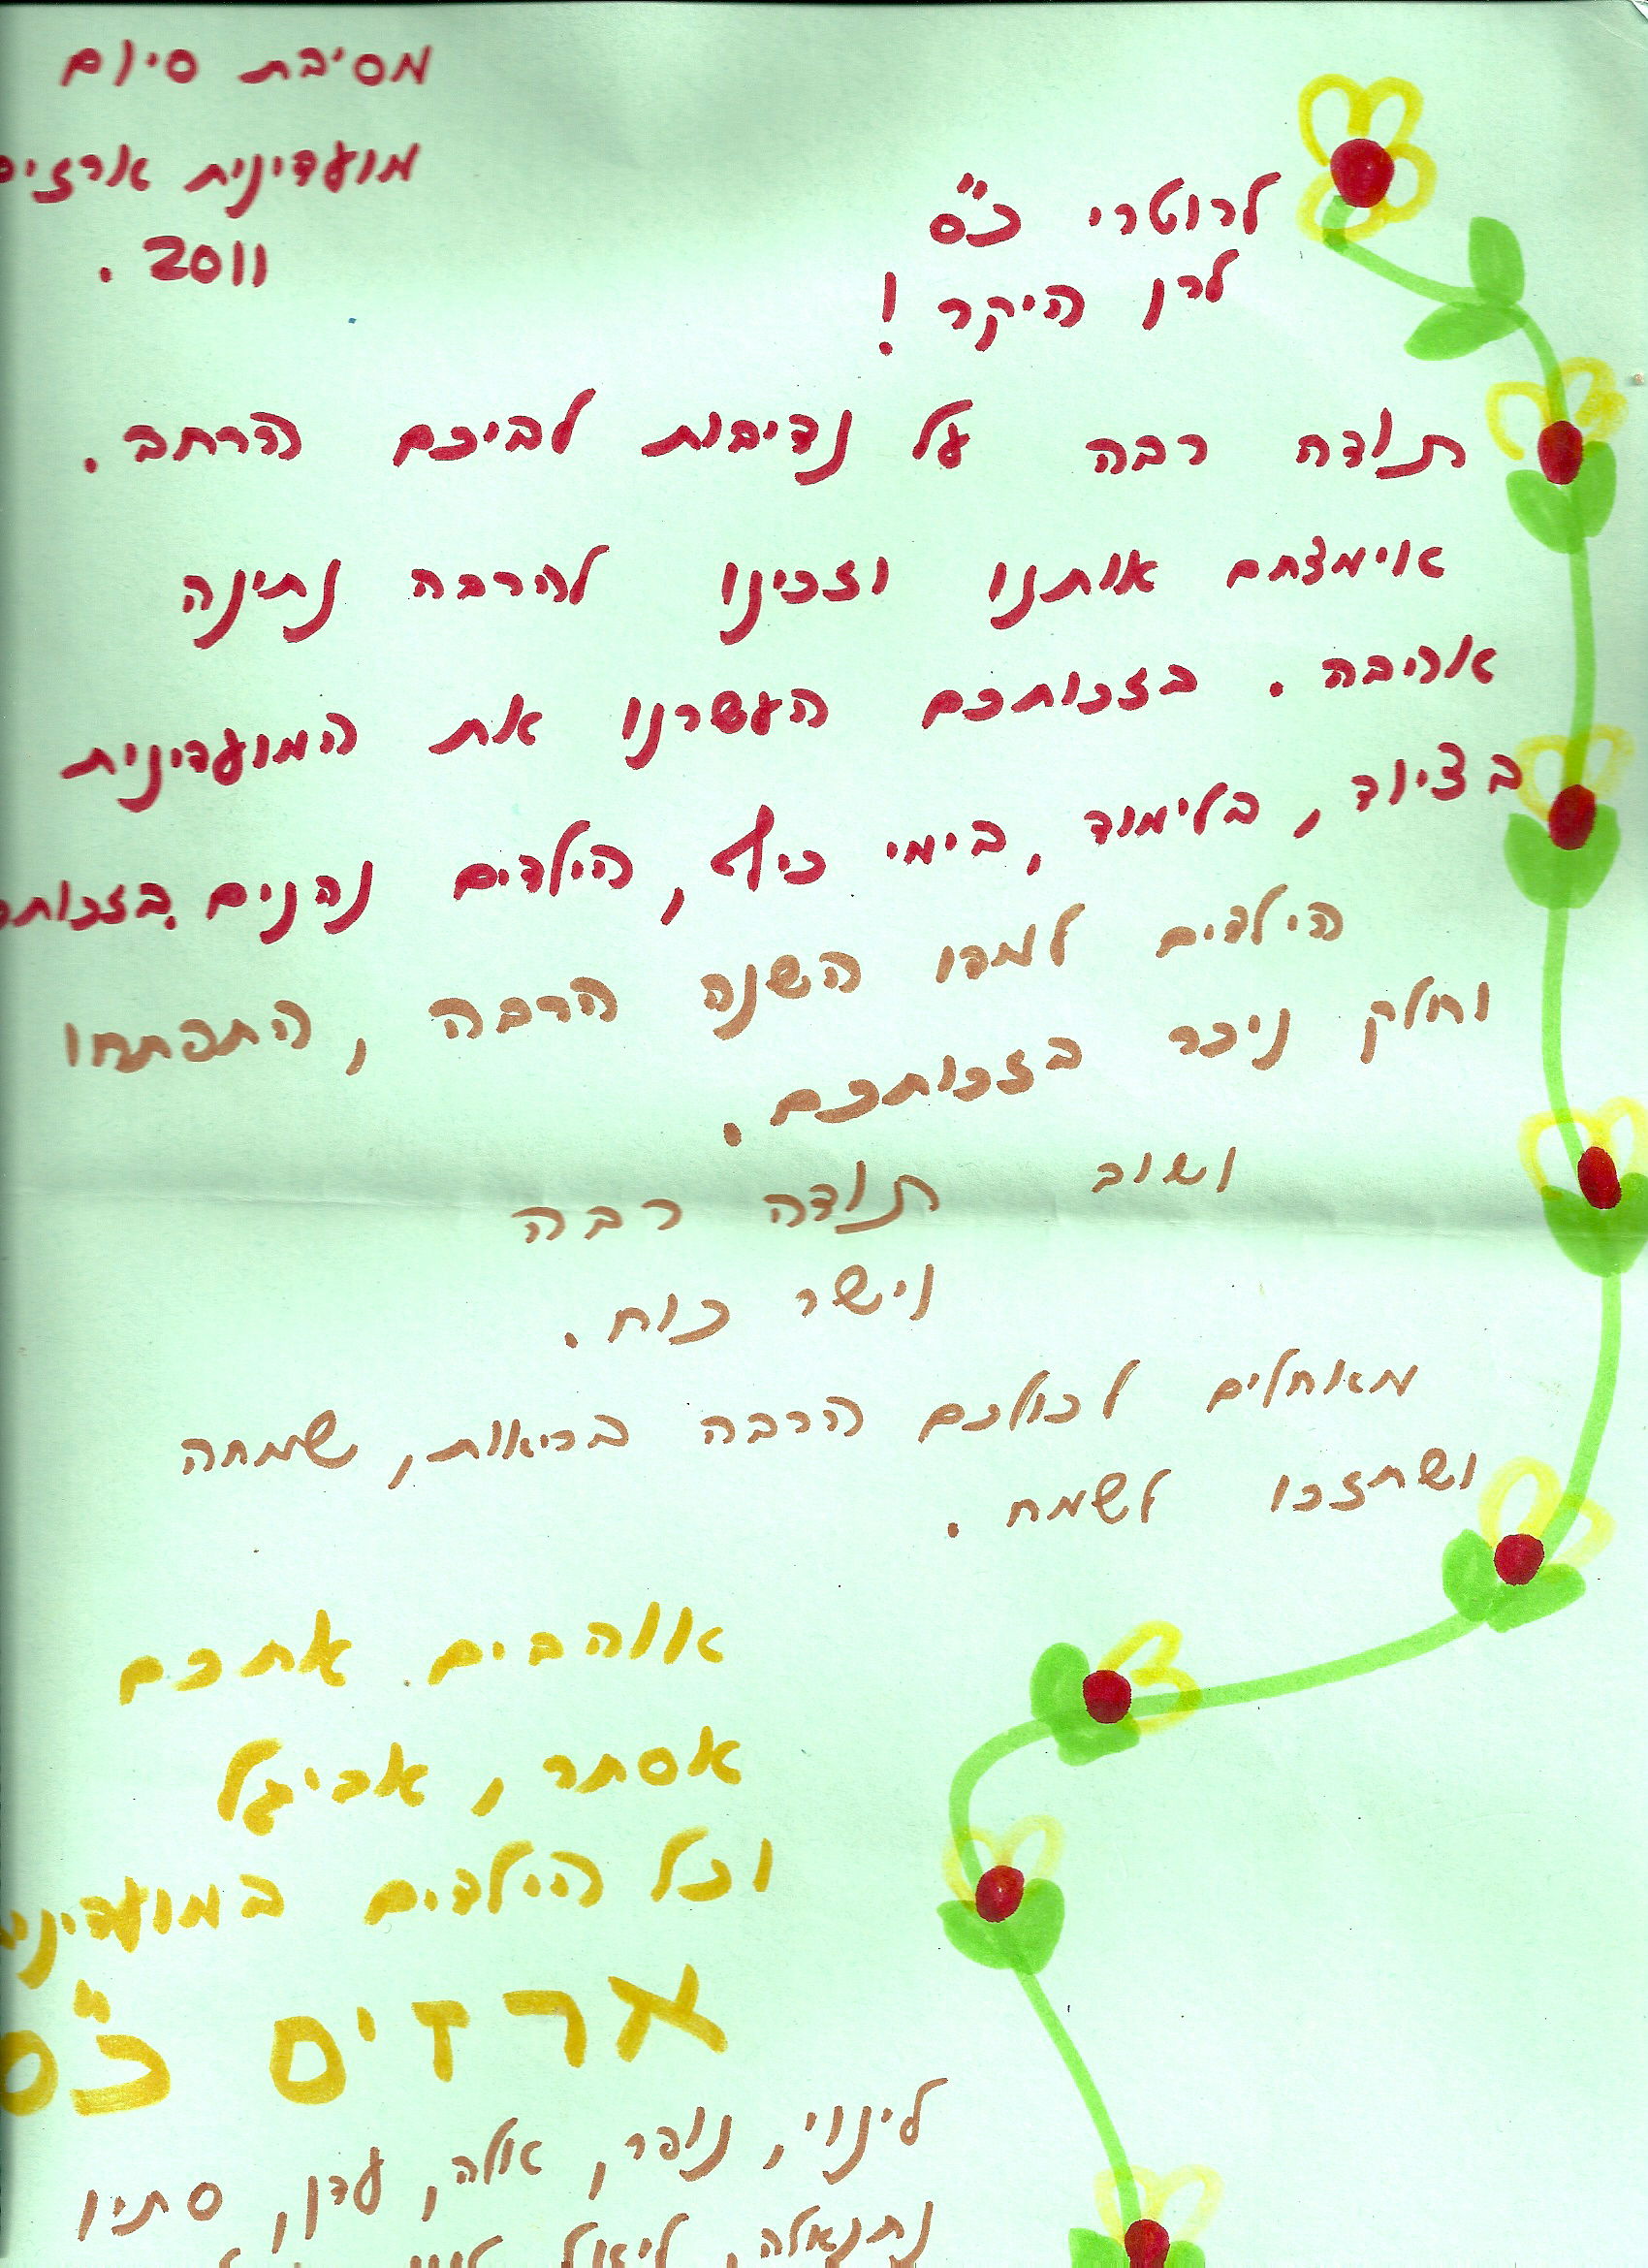 מסיבת סיום
מועדינית ארזים
2011.
לרוטרי כ"ס
לרן היקר!
תודה רבה על נדיבות לביכם הרחב.
אוימצתם אותנו וזכינו להרבה נתינה
אהיבה. בזכותכם העשרנו את המועדינית
בציוד, בלימוד, בימי כיף, הילדים נהנים בזכותכם
הילדים למדו השנה הרבה, התפתחו
וחלק ניכר בזכותכם.
ושוב תודה רבה
וישר כוח.
מאוחלים לכולכם הרבה בריאות, שמחה
ושתזכו לשמח.
אווהבים אתכם
אסתר, אביגל
וכל הילדים במועדינית
ארזים כ"ס
לינוי, נופר, אלה, עדן, סתיו
נתנאלה, ליאל